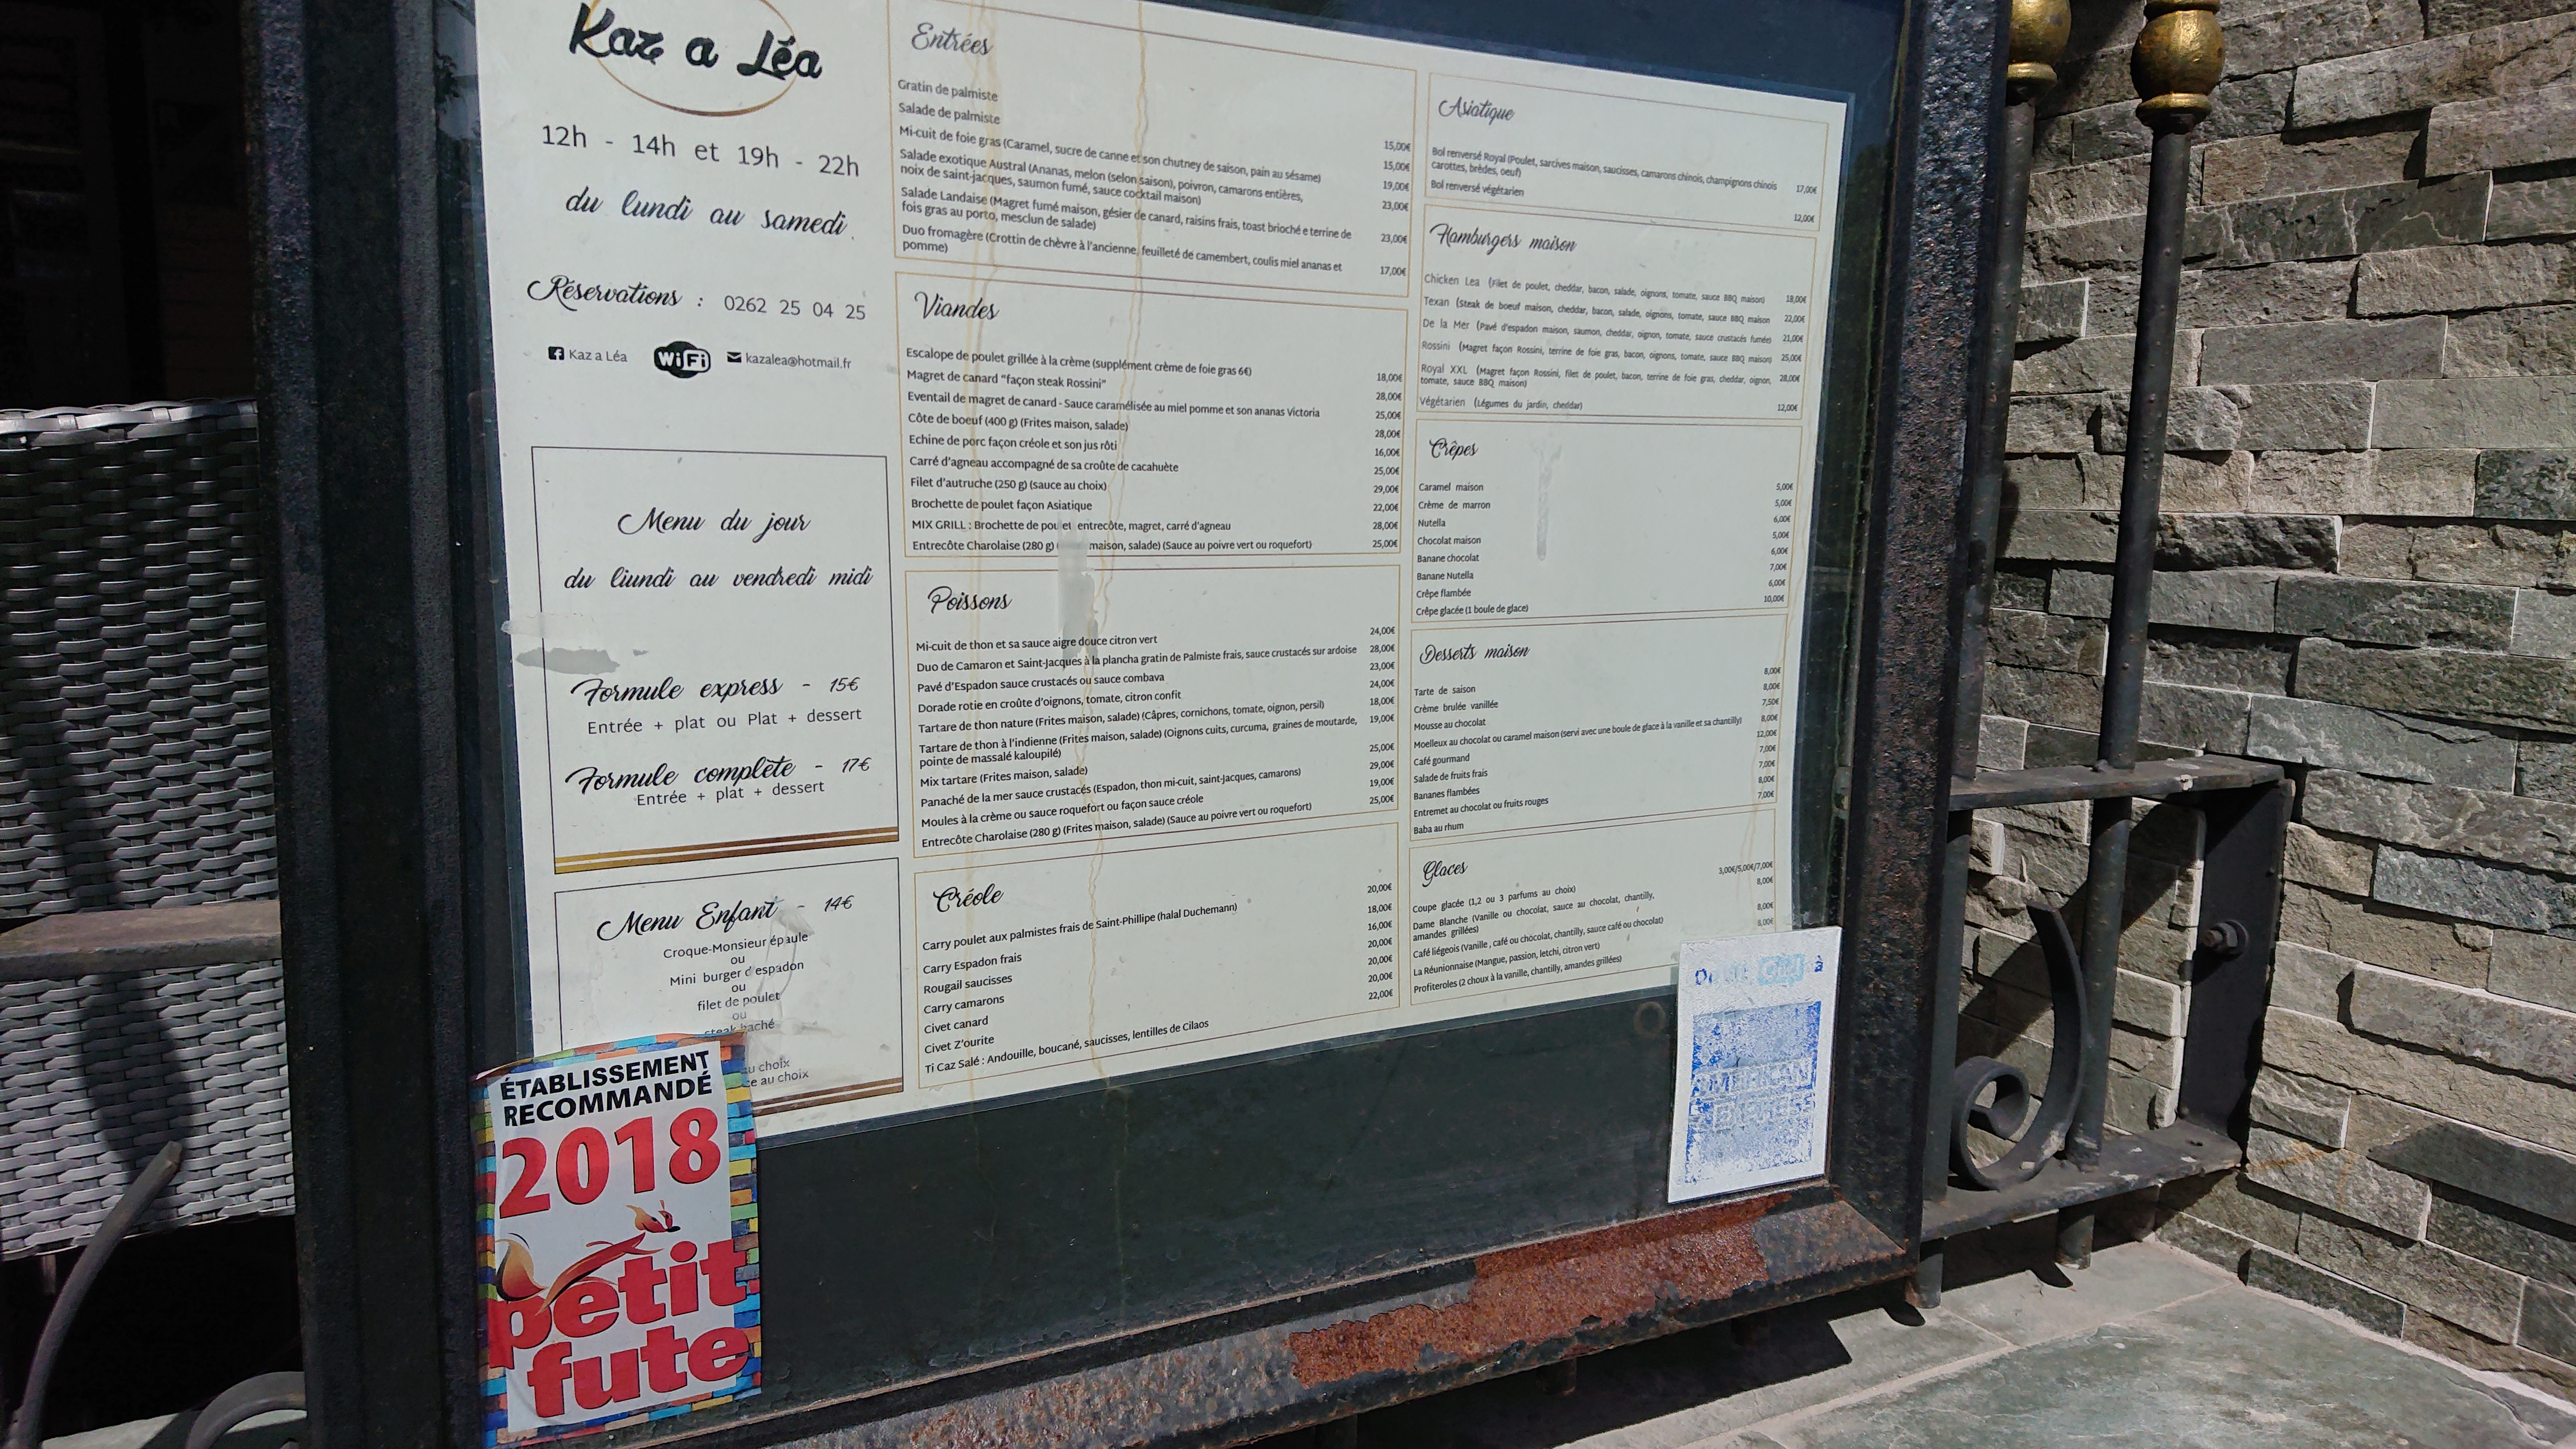 Kaz a Léa
12h - 14h et 19h - 22h
du lundi au samedi
Réservations : 0262 25 04 25
Kaz a Léa WiFi kazalea@hotmail.fr
Menu du jour
du liundi au vendredi midi
Formule express - 15€
Entrée + plat ou Plat + dessert
Formule complète - 17€
Entrée + plat + dessert
Menu Enfant - 14€
Croque-Monsieur épaule
ou
Mini burger d'espadon
ou
filet de poulet
ou
steak haché
au choix
au choix
ÉTABLISSEMENT
RECOMMANDÉ
2018
petit
fute
Entrées
Gratin de palmiste 15,00€
Salade de palmiste 15,00€
Mi-cuit de foie gras (Caramel, sucre de canne et son chutney de saison, pain au sésame) 19,00€
Salade exotique Austral (Ananas, melon (selon saison), poivron, camarons entières, 23,00€
noix de saint-jacques, saumon fumé, sauce cocktail maison)
Salade Landaise (Magret fumé maison, gésier de canard, raisins frais, toast brioché e terrine de 23,00€
fois gras au porto, mesclun de salade)
Duo fromagère (Crottin de chèvre à l'ancienne, feuilleté de camembert, coulis miel ananas et 17,00€
pomme)
Viandes
Escalope de poulet grillée à la crème (supplément crème de foie gras 6€) 18,00€
Magret de canard "façon steak Rossini" 28,00€
Eventail de magret de canard - Sauce caramélisée au miel pomme et son ananas Victoria 25,00€
Côte de boeuf (400 g) (Frites maison, salade) 28,00€
Echine de porc façon créole et son jus rôti 16,00€
Carré d'agneau accompagné de sa croûte de cacahuète 25,00€
Filet d'autruche (250 g) (sauce au choix) 29,00€
Brochette de poulet façon Asiatique 22,00€
MIX GRILL : Brochette de poulet entrecôte, magret, carré d'agneau 28,00€
Entrecôte Charolaise (280 g) maison, salade) (Sauce au poivre vert ou roquefort) 25,00€
Poissons
Mi-cuit de thon et sa sauce aigre douce citron vert 24,00€
Duo de Camaron et Saint-Jacques à la plancha gratin de Palmiste frais, sauce crustacés sur ardoise 28,00€
Pavé d'Espadon sauce crustacés ou sauce combava 23,00€
Dorade rotie en croûte d'oignons, tomate, citron confit 24,00€
Tartare de thon nature (Frites maison, salade) (Câpres, cornichons, tomate, oignon, persil) 18,00€
Tartare de thon à l'indienne (Frites maison, salade) (Oignons cuits, curcuma, graines de moutarde, 19,00€
pointe de massalé kaloupilé)
Mix tartare (Frites maison, salade) 25,00€
Panaché de la mer sauce crustacés (Espadon, thon mi-cuit, saint-jacques, camarons) 29,00€
Moules à la crème ou sauce roquefort ou façon sauce créole 19,00€
Entrecôte Charolaise (280 g) (Frites maison, salade) (Sauce au poivre vert ou roquefort) 25,00€
Créole
Carry poulet aux palmistes frais de Saint-Phillipe (halal Duchemann) 20,00€
Carry Espadon frais 18,00€
Rougail saucisses 16,00€
Carry camarons 20,00€
Civet canard 20,00€
Civet Z'ourite 20,00€
Ti Caz Salé : Andouille, boucané, saucisses, lentilles de Cilaos 22,00€
Asiatique
Bol renversé Royal (Poulet, sarcives maison, saucisses, camarons chinois, champignons chinois 17,00€
carottes, brèdes, oeuf)
Bol renversé végétarien 12,00€
Hamburgers maison
Chicken Lea (Filet de poulet, cheddar, bacon, salade, oignons, tomate, sauce BBQ maison) 18,00€
Texan (Steak de boeuf maison, cheddar, bacon, salade, oignons, tomate, sauce BBQ maison 22,00€
De la Mer (Pavé d'espadon maison, saumon, cheddar, oignon, tomate, sauce crustacés fumée) 21,00€
Rossini (Magret façon Rossini, terrine de foie gras, bacon, oignons, tomate, sauce BBQ maison) 25,00€
Royal XXL (Magret façon Rossini, filet de poulet, bacon, terrine de foie gras, cheddar, oignon, 28,00€
tomate, sauce BBQ maison)
Végétarien (Légumes du jardin, cheddar) 12,00€
Crêpes
Caramel maison 5,00€
Crème de marron 5,00€
Nutella 6,00€
Chocolat maison 5,00€
Banane chocolat 6,00€
Banane Nutella 7,00€
Crêpe flambée 6,00€
Crêpe glacée (1 boule de glace) 10,00€
Desserts maison
Tarte de saison 8,00€
Crème brulée vanillée 8,00€
Mousse au chocolat 7,50€
Moelleux au chocolat ou caramel maison (servi avec une boule de glace à la vanille et sa chantilly) 8,00€
Café gourmand 12,00€
Salade de fruits frais 7,00€
Bananes flambées 7,00€
Entremet au chocolat ou fruits rouges 8,00€
Baba au rhum 7,00€
Glaces
Coupe glacée (1,2 ou 3 parfums au choix) 3,00€/5,00€/7,00€
Dame Blanche (Vanille ou chocolat, sauce au chocolat, chantilly, 8,00€
amandes grillées)
Café liégeois (Vanille , café ou chocolat, chantilly, sauce café ou chocolat) 8,00€
La Réunionnaise (Mangue, passion, letchi, citron vert) 8,00€
Profiteroles (2 choux à la vanille, chantilly, amandes grillées)
AMERICAN
EXPRESS